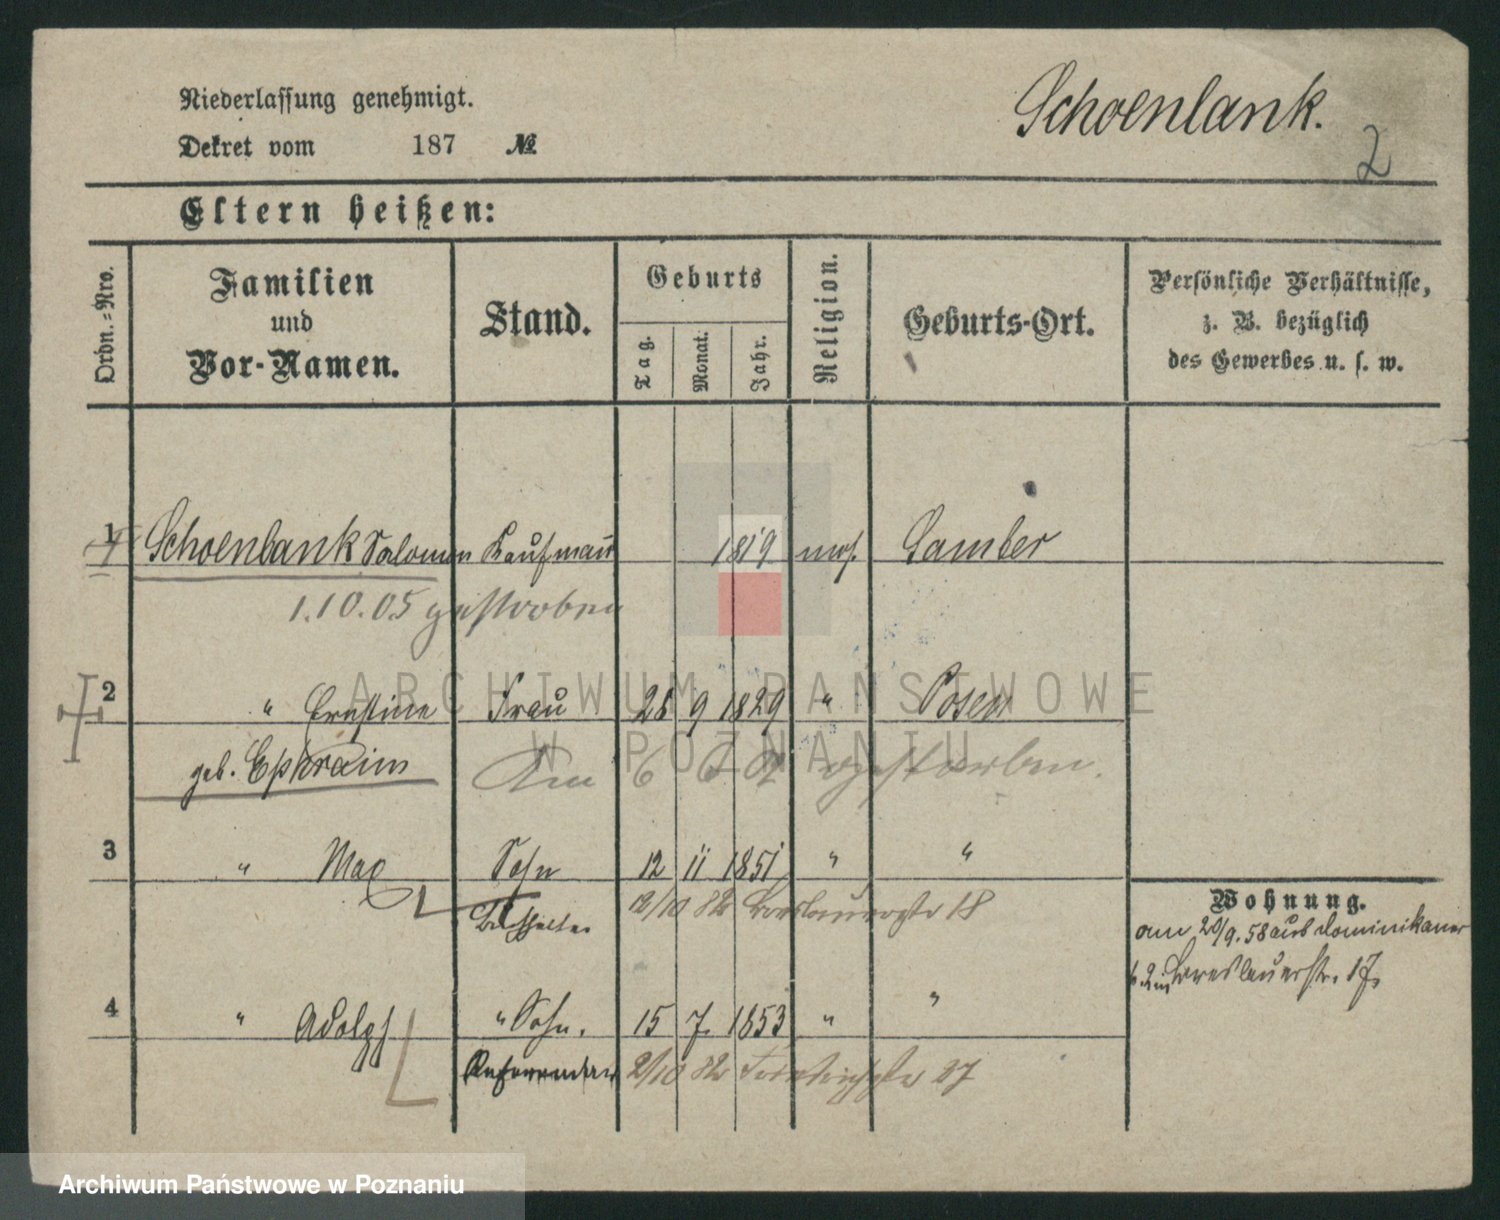 Niederlassung genehmigt.
Dekret vom 187 №
Schoenlank.
2
Eltern heißen:
Ordn.-Nro.
Familien
und
Vor-Namen.
Stand.
Geburts
Tag.
Monat.
Jahr.
Religion.
Geburts-Ort.
Persönliche Verhältnisse,
z. B. bezüglich
des Gewerbes u. s. w.
1 Schoenlank Salomon Kaufmann 1819 mos. Samter
1.10.05 gestorben
2 " Ernestine Frau 28 9 1829 " Posen
geb. Ephraim
Am 6 gestorben.
3 " Max Sohn 12 11 1851 " "
12/10 82 Breslauerstr 18
4 " Adolph " Sohn. 15 7. 1853 " "
Referendar 2/10 82 27
Wohnung.
am 20/9. 58 aus Dominikaner
Breslauerstr. 17.
ARCHIWUM PAŃSTWOWE
W POZNANIU
Archiwum Państwowe w Poznaniu